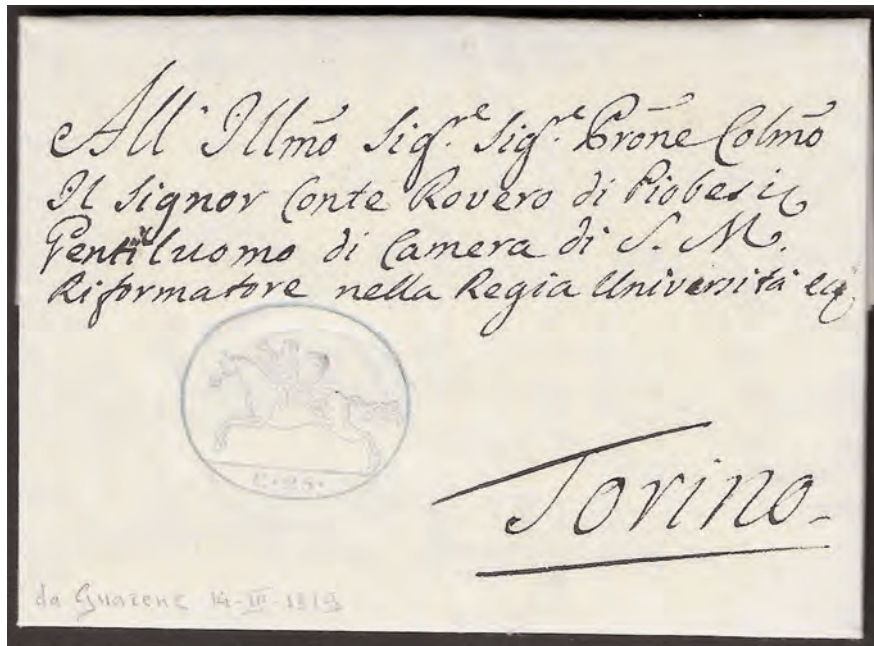 All' Illmo Sigre. Sigre. Prone Colmo
Il Signor Conte Rovero di Piobesi
Gentiluomo di Camera di S. M.
Riformatore nella Regia Università
C. 25.
Torino
da Guarene 14-III-1819